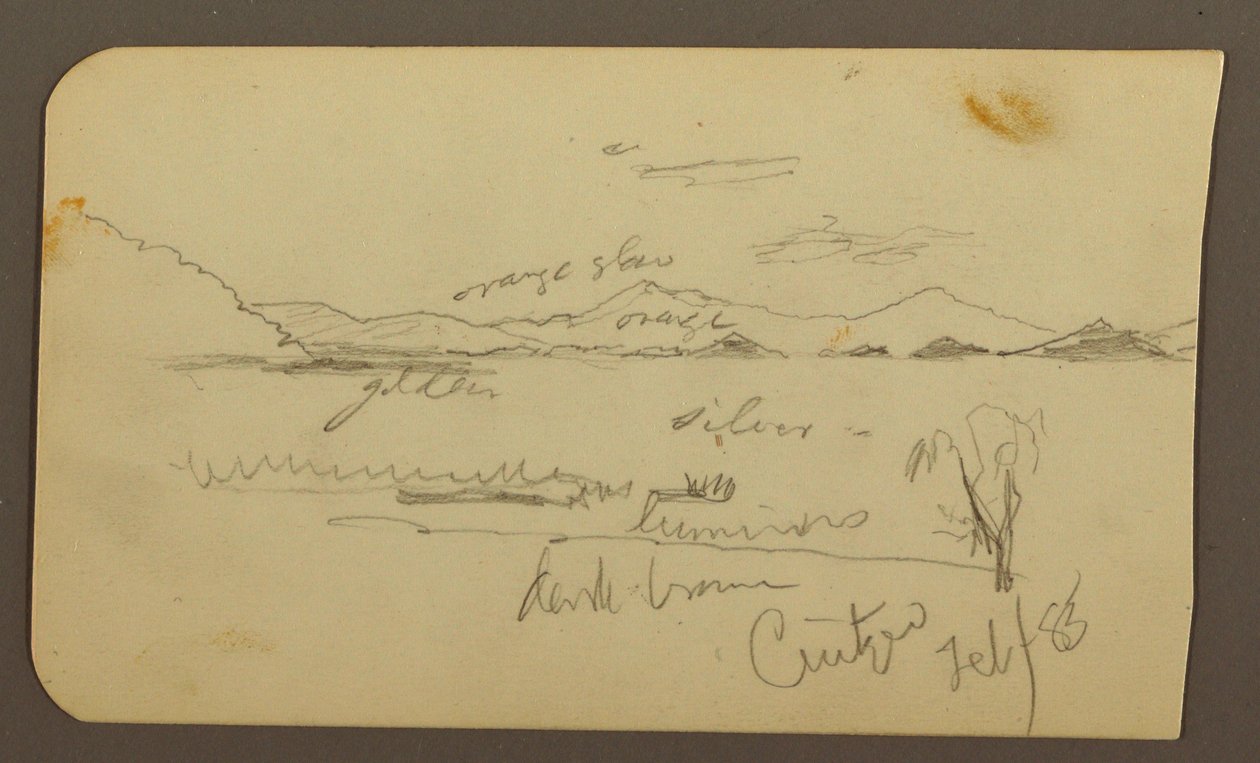 orange glow
orange
golden
silver
luminous
dark brown
Cuitzeo Feb/83